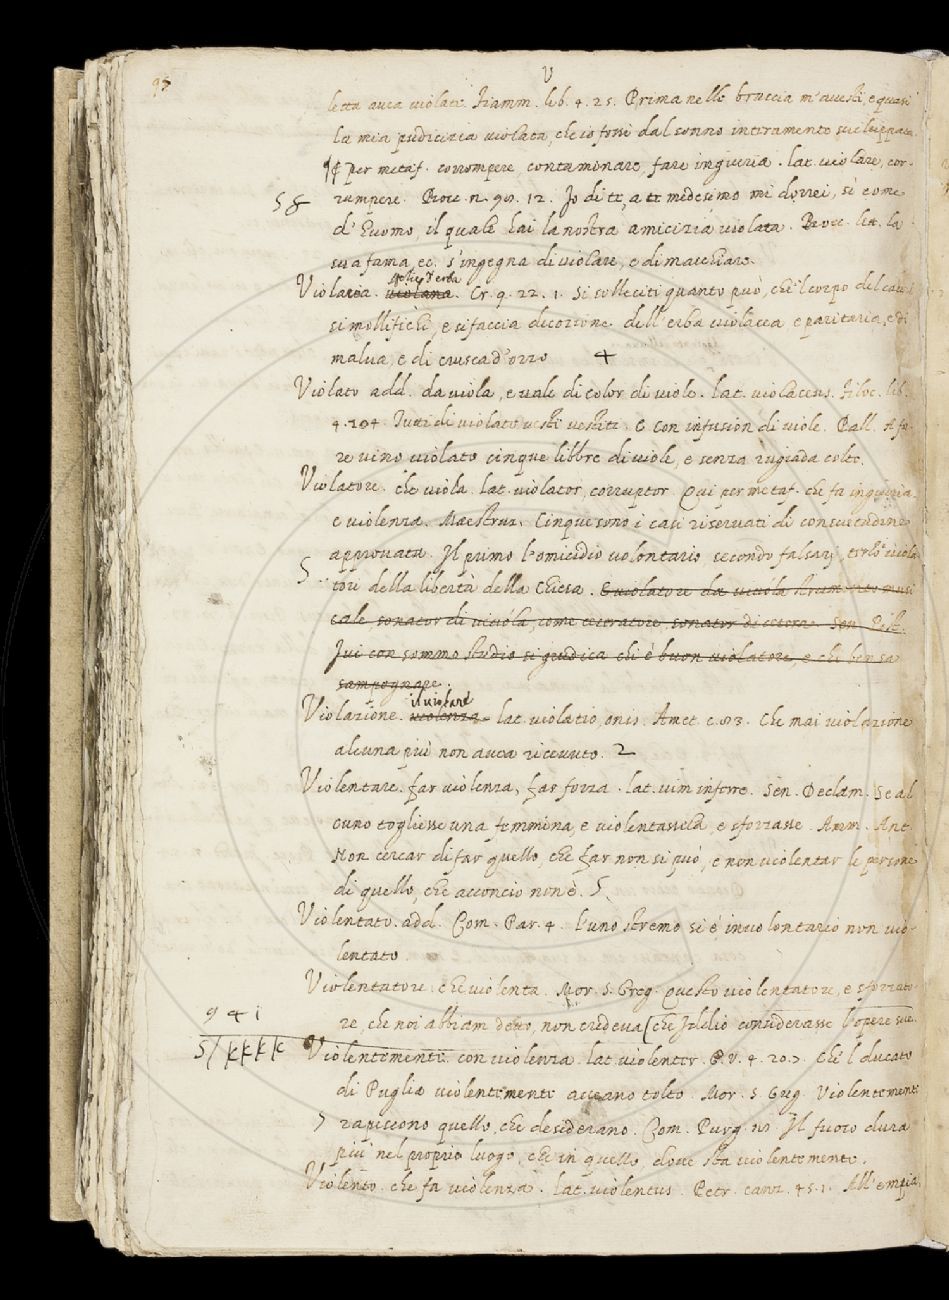 95
V
letta avea violati. Fiamm. lib. 4. 25. Prima nelle braccia m'avesti, e quasi
la mia pudicizia violata, che io fossi dal sonno interamente sviluppata
¶ per metaf. corrompere contaminare, fare ingiuria. lat. violare, cor-
58
rumpere. Bocc. n. 98. 12. Io di te, a te medesimo mi dorrei, sì come
d'huomo, il quale hai la nostra amicizia violata. Bocc. lett. la
sua fama, ec. s'ingegna di violare, e di macchiare.
Violaria. violana. Cr. 9. 22. 1. Si solleciti quanto può, che 'l corpo del
si mollifichi, e si faccia decozione dell'erba violacea e paritaria, e di
malva, e di crusca d'orzo 4
Violato add. da viola, e vale di color di viole. lat. violaceus. Filoc. lib.
4. 204. Tutti di violato vesti vestiti. E con infusion di viole. Pall. A fa-
re vino violato cinque libbre di viole, e senza rugiada colte.
Violatore. che viola. lat. violator, corruptor. Qui per metaf. che fa ingiuria
e violenza. Maestruz. Cinque sono i casi riservati di consuetudine
approvata. Il primo l'omicidio volontario, secondo falsarj, terzo viola
5
tori della libertà della Chiesa. E violatore da viuola strumento musi
cale sonator di viuola, come ceteratore, sonator di cetera. Sen. Pist.
Ivi con sommo studio si giudica chi è buon violatore, e chi ben sa
sampognare.
il violare
Violazione. violenza. lat. violatio, onis. Amet. c. 83. Che mai violazione
alcuna più non avea ricevuto. 2
Violentare. far violenza, far forza. lat. vim inferre. Sen. Declam. Se al
cuno togliesse una femmina, e violentassela, e sforzasse. Amm. Ant.
Non cercar di far quello, che far non si può, e non violentar le persone
di quello, che acconcio non è. 5
Violentato. add. Com. Par. 4. l'uno stremo si è involontario non vio-
lentato.
Violentatore. che violenta. Mor. S. Greg. Questo violentatore, e sforzato-
re, che noi abbiam detto, non credeva che Iddio considerasse l'opere sue.
941
5/ kkkk
Violentemente. con violenza. lat. violenter. G. V. 4. 20. Che 'l ducato
di Puglia violentemente aveano tolto. Mor. S. Greg. Violentemente
5
rapiscono quello, che desiderano. Com. Purg. Il fuoco dura
più nel proprio luogo, che in quello, dove sta violentemente.
Violento. che fa violenza. lat. violentus. Petr. canz. 45. 1. All'empia